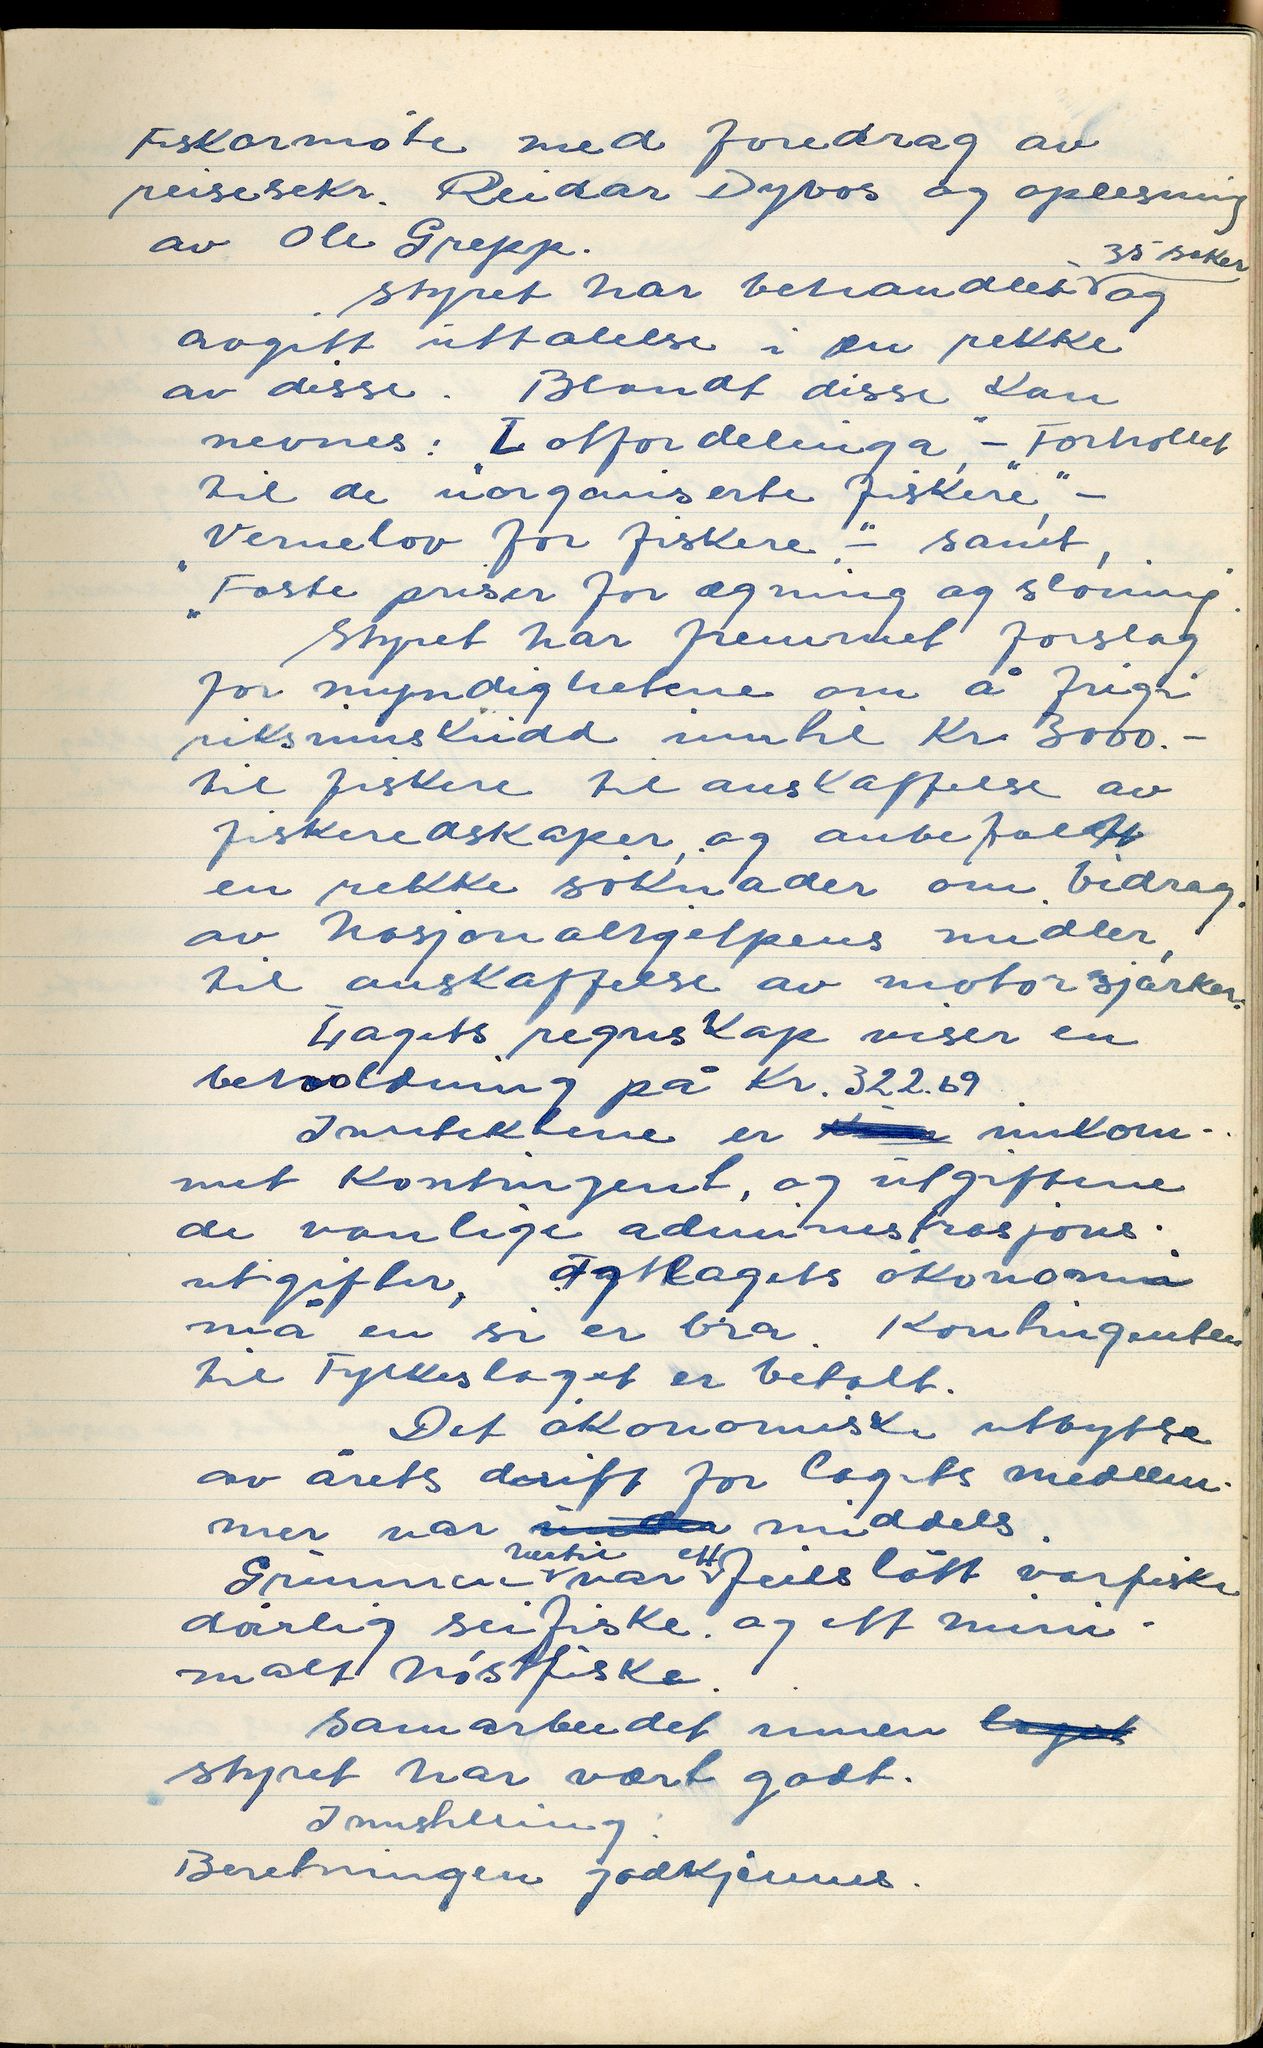 Fiskarmöte med foredrag av
reisesekr. Reidar Dybos og oplesning
av Ole Grepp.
Styret har behandlet 35 saker og
avgitt uttalelse i en rekke
av disse. Blandt disse kan
nevnes: "Lotfordelinga" - "Forholdet
til de uorganiserte fiskere" -
"Vernelov for fiskere" - samt
"Faste priser for egning og sløning.
Styret har fremmet forslag
for myndighetene om å frigi
riksinnskudd inntil Kr 3000.-
til fiskere til anskaffelse av
fiskeredskaper, og anbefalt
en rekke söknader om bidrag
av Nasjonalhjelpens midler,
til anskaffelse av motorsjarker.
Lagets regnskap viser en
beholdning på Kr. 322.69
Inntektene er innkom-
met Kontingent, og utgiftene
de vanlige administrasjons-
utgifter, og lagets ökonomi
må en si er bra. Kontingenten
til Fylkeslaget er betalt.
Det ökonomiske utbytte
av årets drift for lagets medlem-
mer var under middels.
Grunnen hertil var ett feilslått vårfiske
dårlig seifiske. og ett mini-
malt höstfiske.
Samarbeidet innen laget
styret har vært godt.
Innstilling:
Beretningen godkjennes.